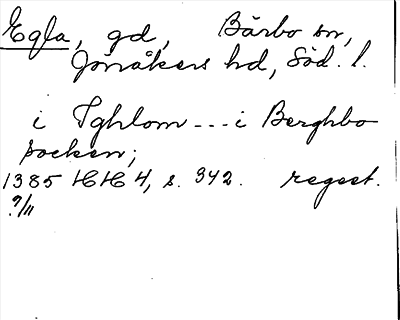 Egla, gd, Bärbo sn,
Jönåkers hd, Söd. l.
i Ighlom --- i Berghbo
socken;
1385 HH 4, s. 342. regest.
?/11